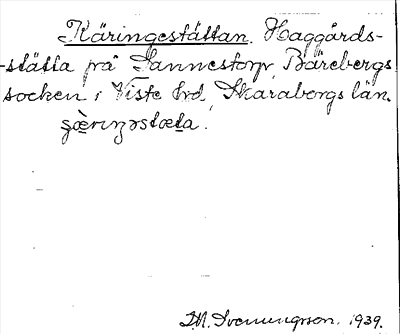 Käringestättan. Haggårds-
-stätta frå Sannestorp, Bärebergs
socken i Viste hrd, Skarabergs län.
J.M. Svenungsson. 1939.